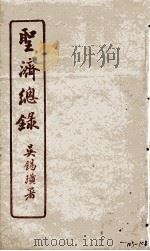 聖濟總錄
吳錫璜署